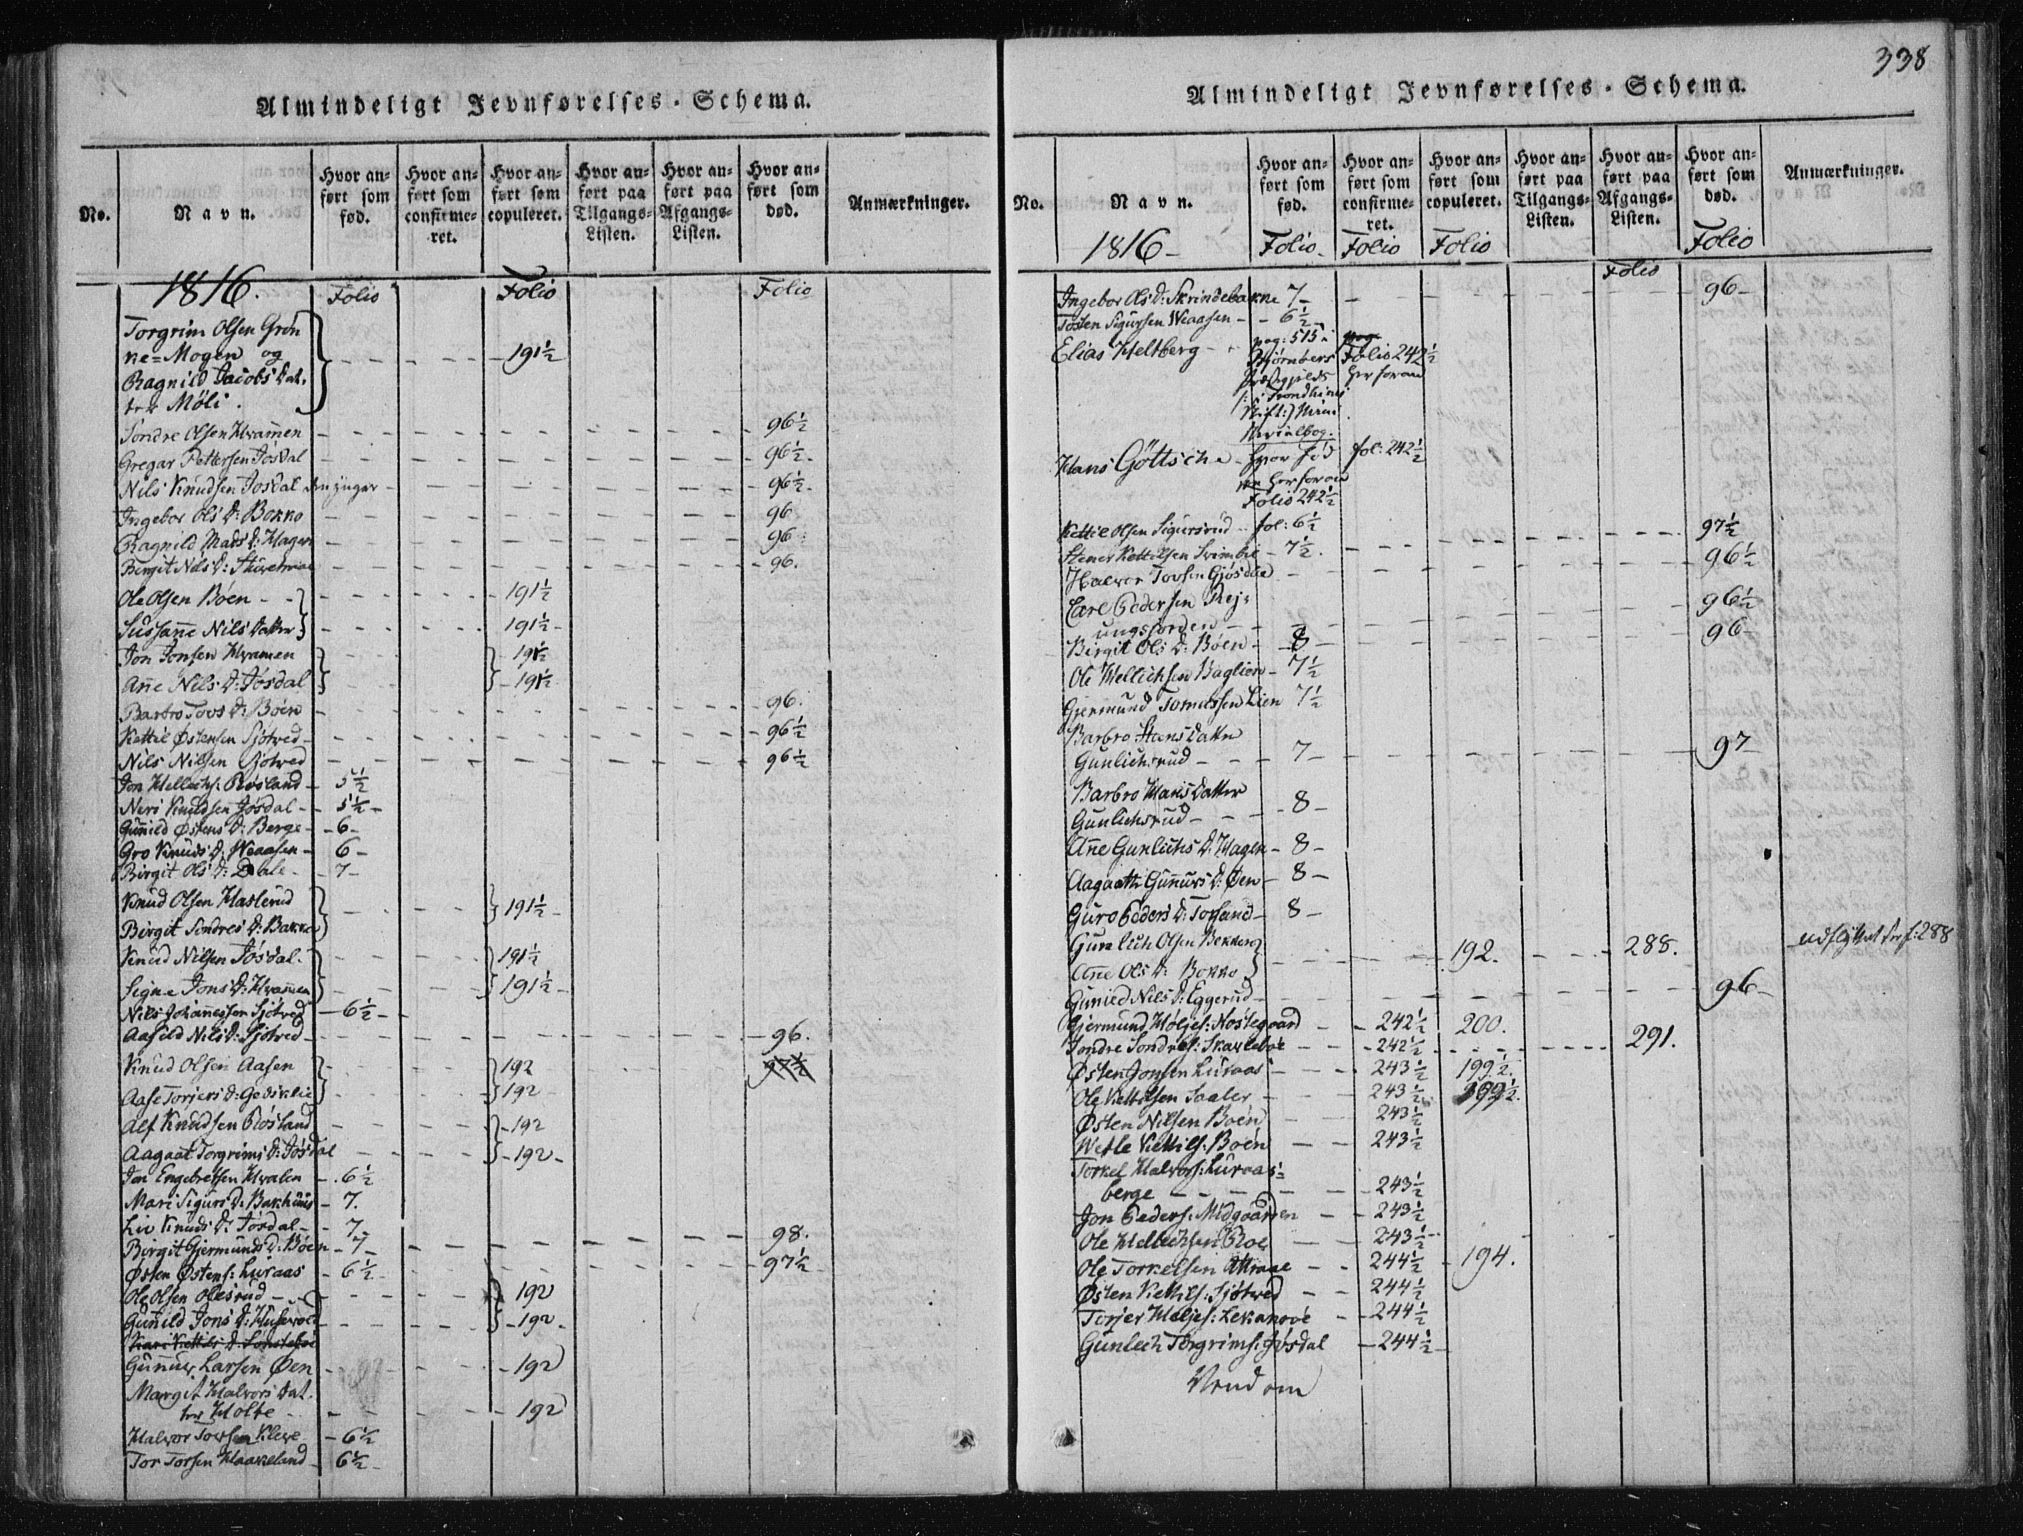 338
Almindeligt Jevnførelses-Schema.
No.
Navn.
Hvor anført som fød.
Hvor anført som confirmeret.
Hvor anført som copuleret.
Hvor anført paa Tilgangs-Listen.
Hvor anført paa Afgangs-Listen.
Hvor anført som død.
Anmærkninger.
1816. Folio Folio Folio
Torgrim Olsen Grøn
ne=Mogen og - - - 191½
Ragnild Jacobs Dat.
ter Møli.
Søndre Olsen Kvamen - - - 96½
Gregar Pettersen Jøsdal - - - 96½
Nils Knudsen Jøsdal den ÿnger - - - 96½
Ingebor Ols D: Bakko - - - 96
Ragnild Mads D: Hagen - - - 96
Birgit Nils D: - - - 96.
Ole Olsen Bøen - - - 191½
Sussane Nils Datter - - - 191½
Jon Jonsen Kvamen 191½
Ane Nils D: Jøsdal - - - 191½
Barbro Tovs D: Bøen - - - 96.
Kettil Østensen Sjøtved - - - 96½
Nils Nilsen Sjøtved - - - 96½
Jon Hellechs: Røsland - 5½
Neri Knudsen Jøsdal - 5½
Gunild Østens D: Berge - 6 -
Gro Knuds D: Weaasen - 6 -
Birgit Ols D: Dale - 7 -
Knud Olsen Haslerud - - - 191½
Birgit Søndres D: Bakke
Knud Nilsen Jøsdal - - - 191½
Signe Jons D: Kvamen - - - 191½
Nils Johannessen Sjøtved - 6½
Aasild Nils D: Sjøtved - - - 96.
Knud Olsen Aasen - - - 192 97½
Aase Torjers D: - - - 192
Alf Knudsen Røsland - - - 192
Aagaat Torgrims D: Jøsdal - - - 192
Jon Engebretsen Kvalen - 6½
Mari Sigurs D: Bakhuus - 7.
Liv Knuds D: Jøsdal - 7
Birgit Gjermunds D: Bøen - 7 - - - 98.
Østen Østens: Luraas - 6½ - - - 97½
Ole Olsen Olesrud - - - 192
Gunild Jons D: - - - 192
Kari Kettils D:
Gunnur Larsen Øen - - - 192
Margit Halvors Dat.
ter Holte - - - 192
Halvor Tovsen Kleve - 6½
Tor Torsen Haakeland - 6½
Almindeligt Jevnførelses-Schema.
No.
Navn.
Hvor anført som fød.
Hvor anført som confirmeret.
Hvor anført som copuleret.
Hvor anført paa Tilgangs-Listen.
Hvor anført paa Afgangs-Listen.
Hvor anført som død.
Anmærkninger.
1816 - Folio - Folio Folio Folio Folio
Ingebor Ols D: Skrindebakke 7 - - - 96 -
Tosten Sigursen Weaasen - 6½
Elias Heltberg - pag: 515 i Folio 242½
Bjørnørs her foran
Præstegjelds
/: Trondhiems
Stift:/ Mini
sterialbog.
Hans Göttsche - hvor fød fol: 242½
her foran
Folio 242½
Kettil Olsen Sigursrud - fol: 6½ 97½
Stener Kettilsen - 7½ - - - 96½
Halvor Tovsen Gjøsdal
Carl Pedersen Rej= 96½
ungsjorden - - - 96
Birgit Ols D: Bøen - 8 -
Ole Hellichsen Baglien - 7½
Gjermund Tomessen Lien 7½
Barbro Hans Datter
Gunlichsrud - 7 - - - 97
Barbro Hans Datter
Gunlichsrud - 8 -
Ane Gunlichs D: Hagen - 8 -
Aagaath Gunurs D: Øen - 8 -
Guro Peders D: - 8 -
Gunlich Olsen - - - 192. - - 288. udflyttet see f: 288
Ane Ols D: Bokko
Gunild Nils D: Eggerud - - - 96 -
Gjermund Høljes: - - 242½ 200.
Søndre Søndres: - - 242½ - - - 291.
Østen Jonsen Luraas - - 243½ 199½.
Ole Kettilsen Saaler - - 243½ 199½.
Østen Nilsen Boen - 243½
Wetle Kiettils: Boen - - 243½
Torkel Halvors: Luraas=
berge - - - 243½
Jon Peders: Midgaarden - - 243½
Ole Hellechsen Roe - - 243½
Ole Torkelsen - - 244½ - 194.
Østen Kiettils: Sjøtved - - 244½
Torjer Høljes: - 244½
Gunlech Torgrims: Jøsdal - 244½
Vend om